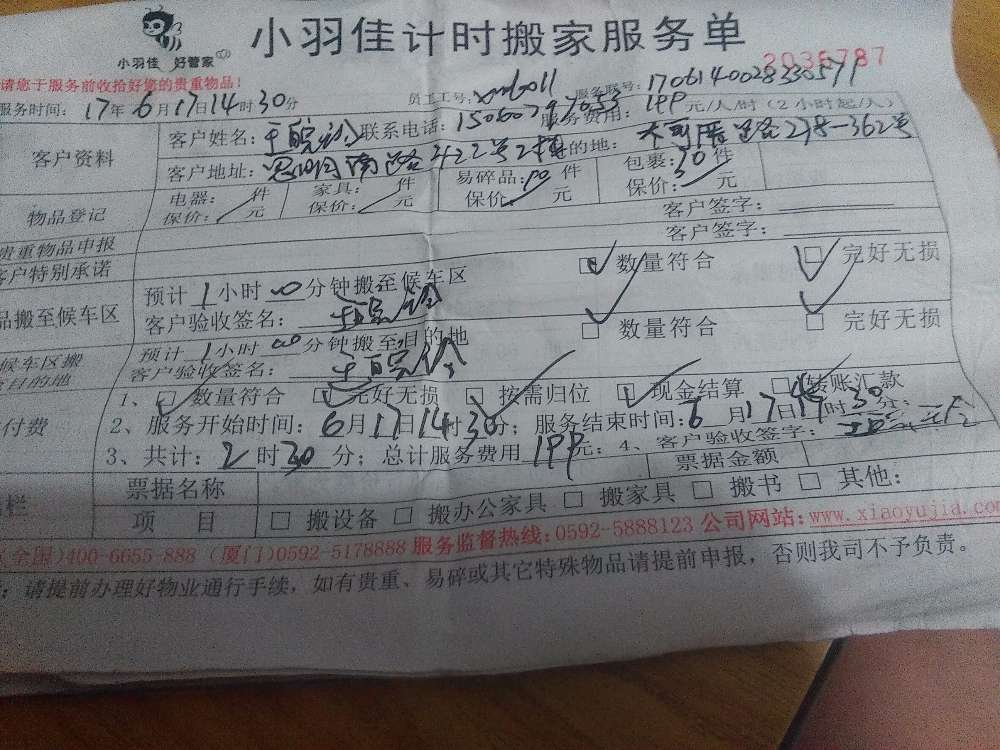 小羽佳 好管家
小羽佳计时搬家服务单
2036787
请您于服务前收拾好您的贵重物品!
服务时间: 17年6月17日14时30分 员工工号: 服务联号:
客户资料 客户姓名: 联系电话: 服务费用: 元/人/时(2小时起/人)
客户地址: 思明南路422号2楼 目的地: 278-362号
物品登记 电器: 件 家具: 件 易碎品: 件 包裹:30件
保价: 元 保价: 元 保价: 元 保价: 元
贵重物品申报 客户签字:
客户特别承诺 客户签字:
品搬至候车区 预计1小时00分钟搬至候车区 数量符合 完好无损
客户验收签名:
候车区搬至目的地 预计1小时00分钟搬至目的地 数量符合 完好无损
客户验收签名:
付费 1、数量符合 完好无损 按需归位 现金结算 转账汇款
2、服务开始时间: 6月17日14时30分; 服务结束时间: 6月17日 时30分;
3、共计: 2时30分; 总计服务费用 元; 4、客户验收签字:
栏 票据名称 票据金额
项目 搬设备 搬办公家具 搬家具 搬书 其他:
(全国)400-6655-888 (厦门)0592-5178888 服务监督热线:0592-5888123 公司网站:www.xiaoyujia.com
:请提前办理好物业通行手续,如有贵重、易碎或其它特殊物品请提前申报,否则我司不予负责。